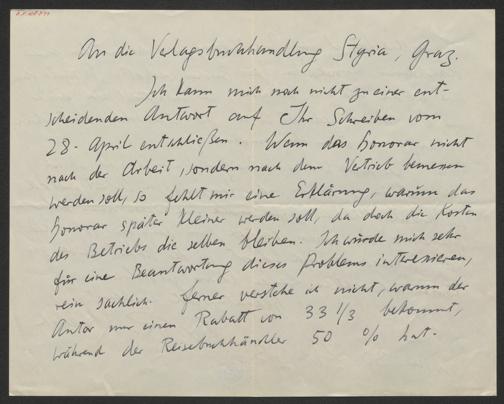 An die Verlagsbuchhandlung Styria, Graz.
Ich kann mich noch nicht zu einer ent-
scheidenden Antwort auf Ihr Schreiben vom
28. April entschließen. Wenn das Honorar nicht
nach der Arbeit, sondern nach dem Vertrieb bemessen
werden soll, so fehlt mir eine Erklärung, warum das
Honorar später kleiner werden soll, da doch die Kosten
des Betriebs die selben bleiben. Ich würde mich sehr
für eine Beantwortung dieses Problems interessieren,
rein sachlich. Ferner verstehe ich nicht, warum der
Autor nur einen Rabatt von 33 1/3 bekommt,
während der Reisebuchhändler 50 % hat.